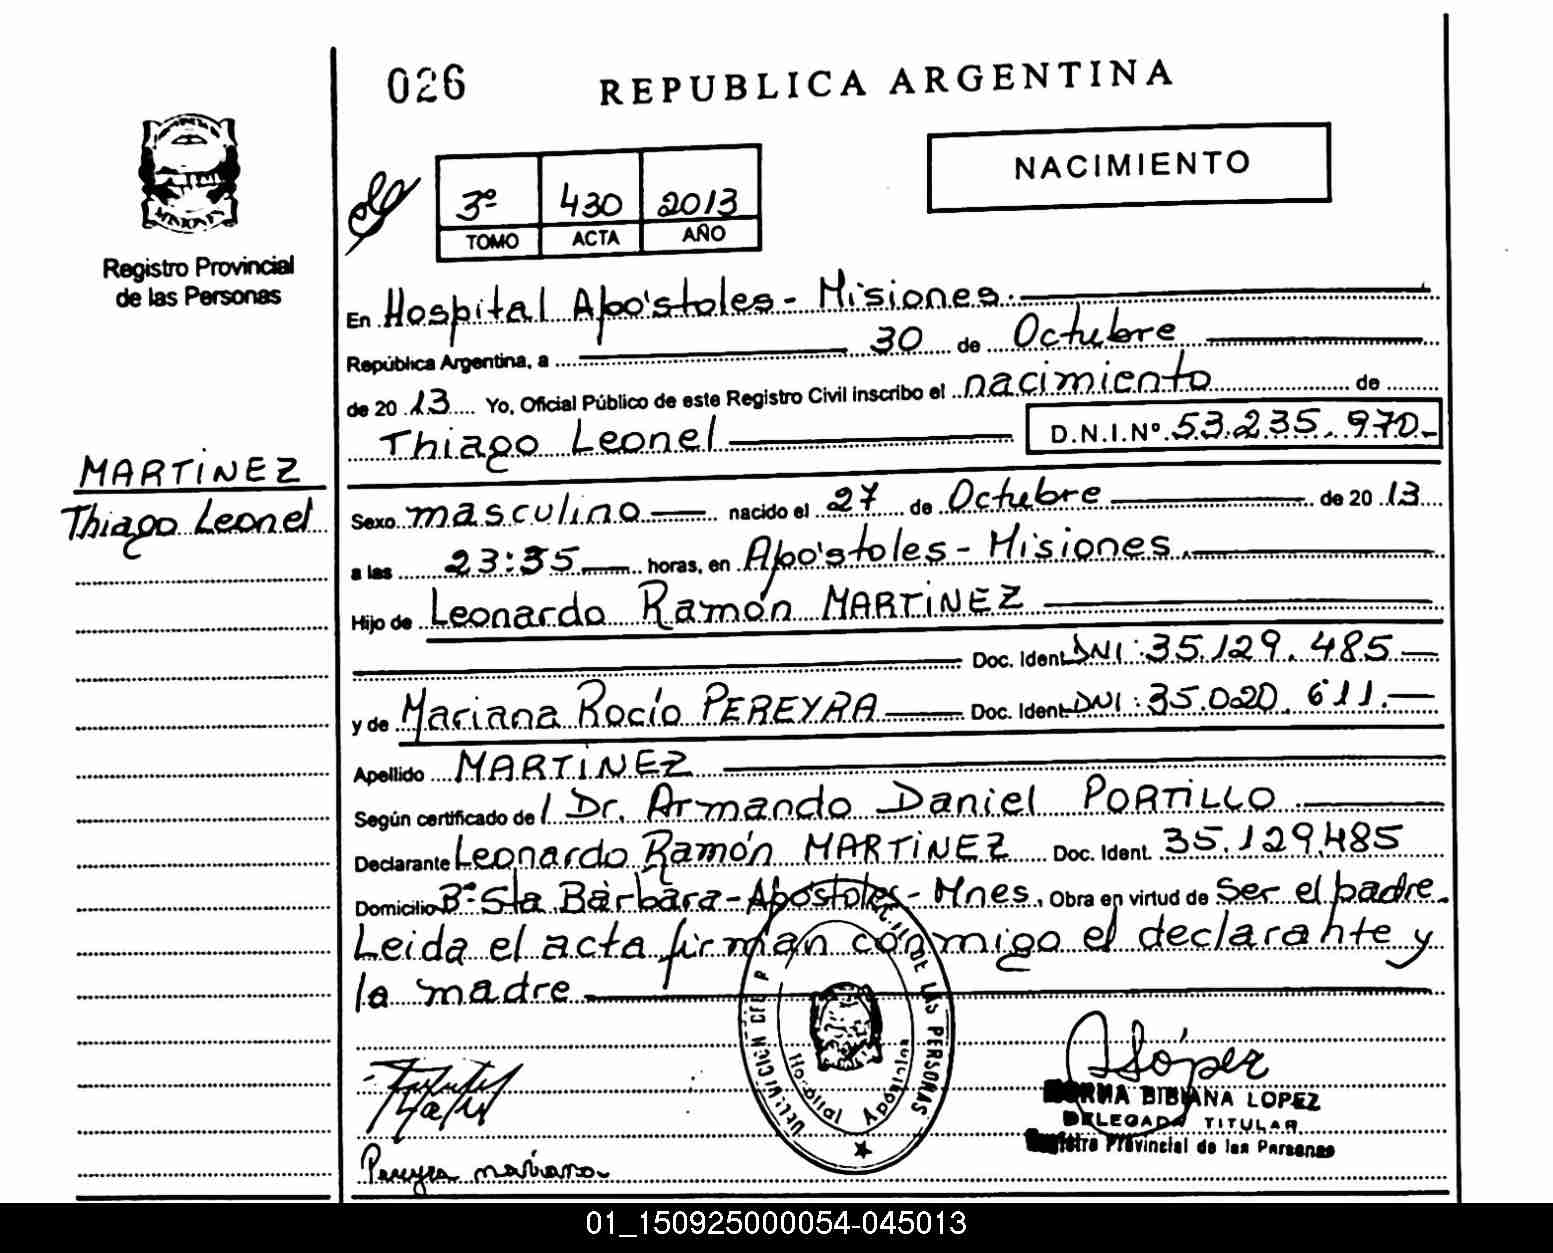 026
REPUBLICA ARGENTINA
MISIONES
Registro Provincial
de las Personas
3º 430 2013
TOMO ACTA AÑO
NACIMIENTO
En Hospital Apóstoles - Misiones.
República Argentina, a 30 de Octubre
de 2013 Yo, Oficial Público de este Registro Civil inscribo el nacimiento de
Thiago Leonel D.N.I.Nº 53.235.970-
MARTiNEZ
Thiago Leonel
Sexo masculino nacido el 27 de Octubre de 2013
a las 23:35 horas, en Apóstoles - Misiones.
Hijo de Leonardo Ramón MARTiNEZ
Doc. Ident. DNI: 35.129.485
y de Mariana Rocío PEREYRA Doc. Ident. DNI: 35.020.611.
Apellido MARTiNEZ
Según certificado de Dr. Armando Daniel PORTiLLO.
Declarante Leonardo Ramón MARTiNEZ Doc. Ident. 35.129.485
Domicilio Bº Sta Bárbara - Apóstoles - Mnes. Obra en virtud de Ser el padre.
Leida el acta firman conmigo el declarante y
la madre
DE LAS PERSONAS
Hospital Apóstoles
López
NORMA BIBIANA LOPEZ
DELEGADA TITULAR
Registro Provincial de las Personas
Pereyra mariana
01_150925000054-045013